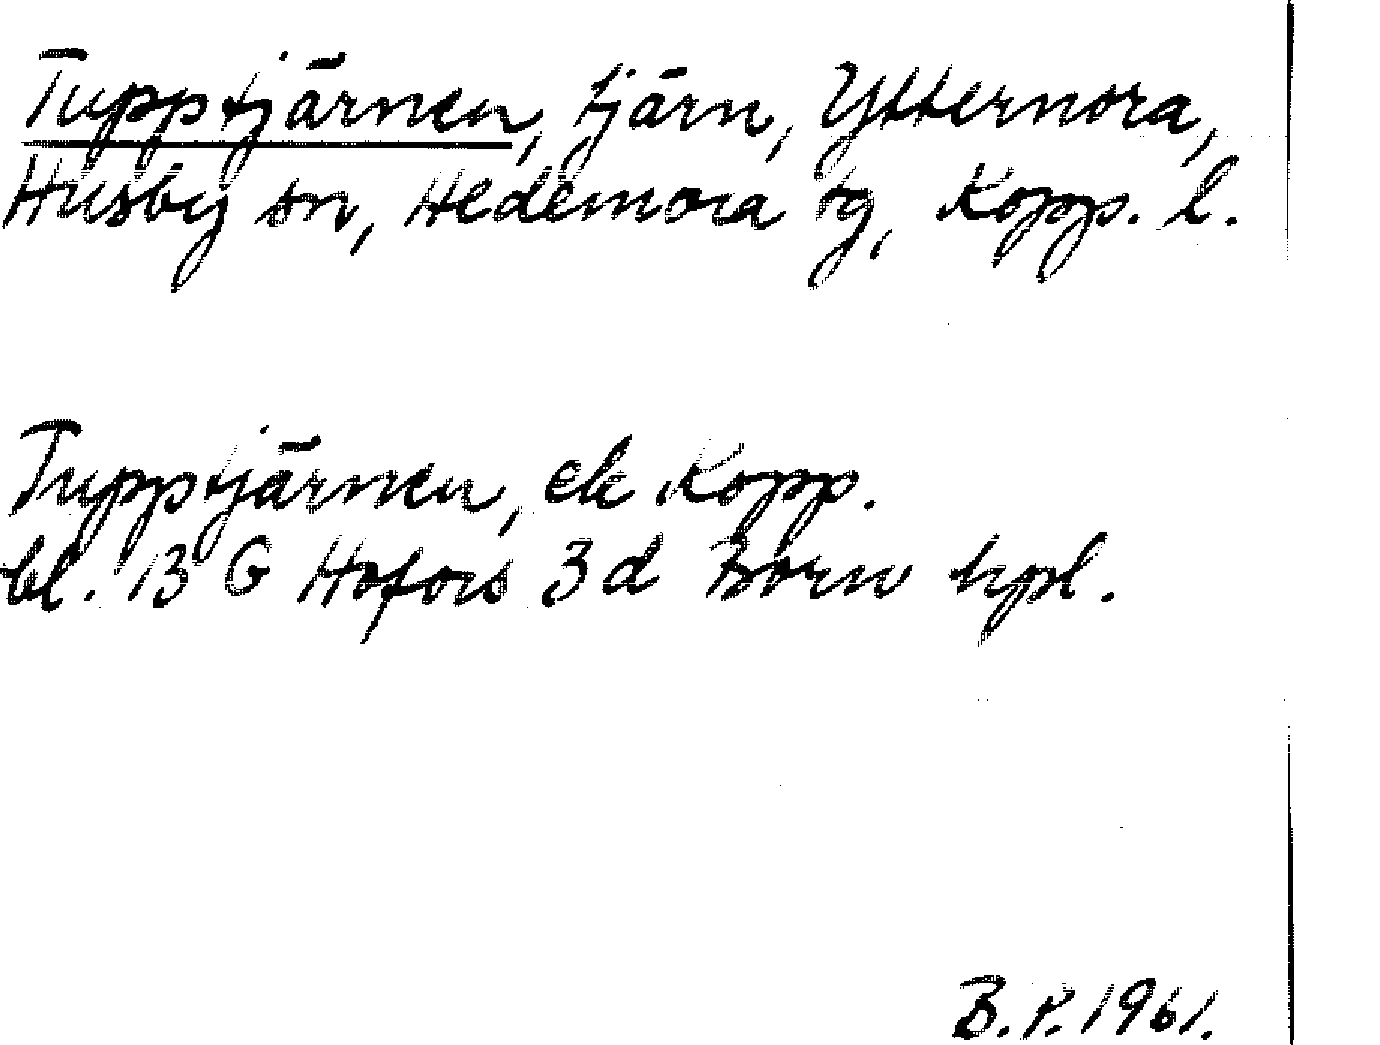 Tupptjärnen, tjärn, Ytternora,
Husby sn, Hedemora tg, Kopp. l.
Tupptjärnen, ek Kopp.
bl. 13 G Hofors 3 d Born hpl.
B. P. 1961.